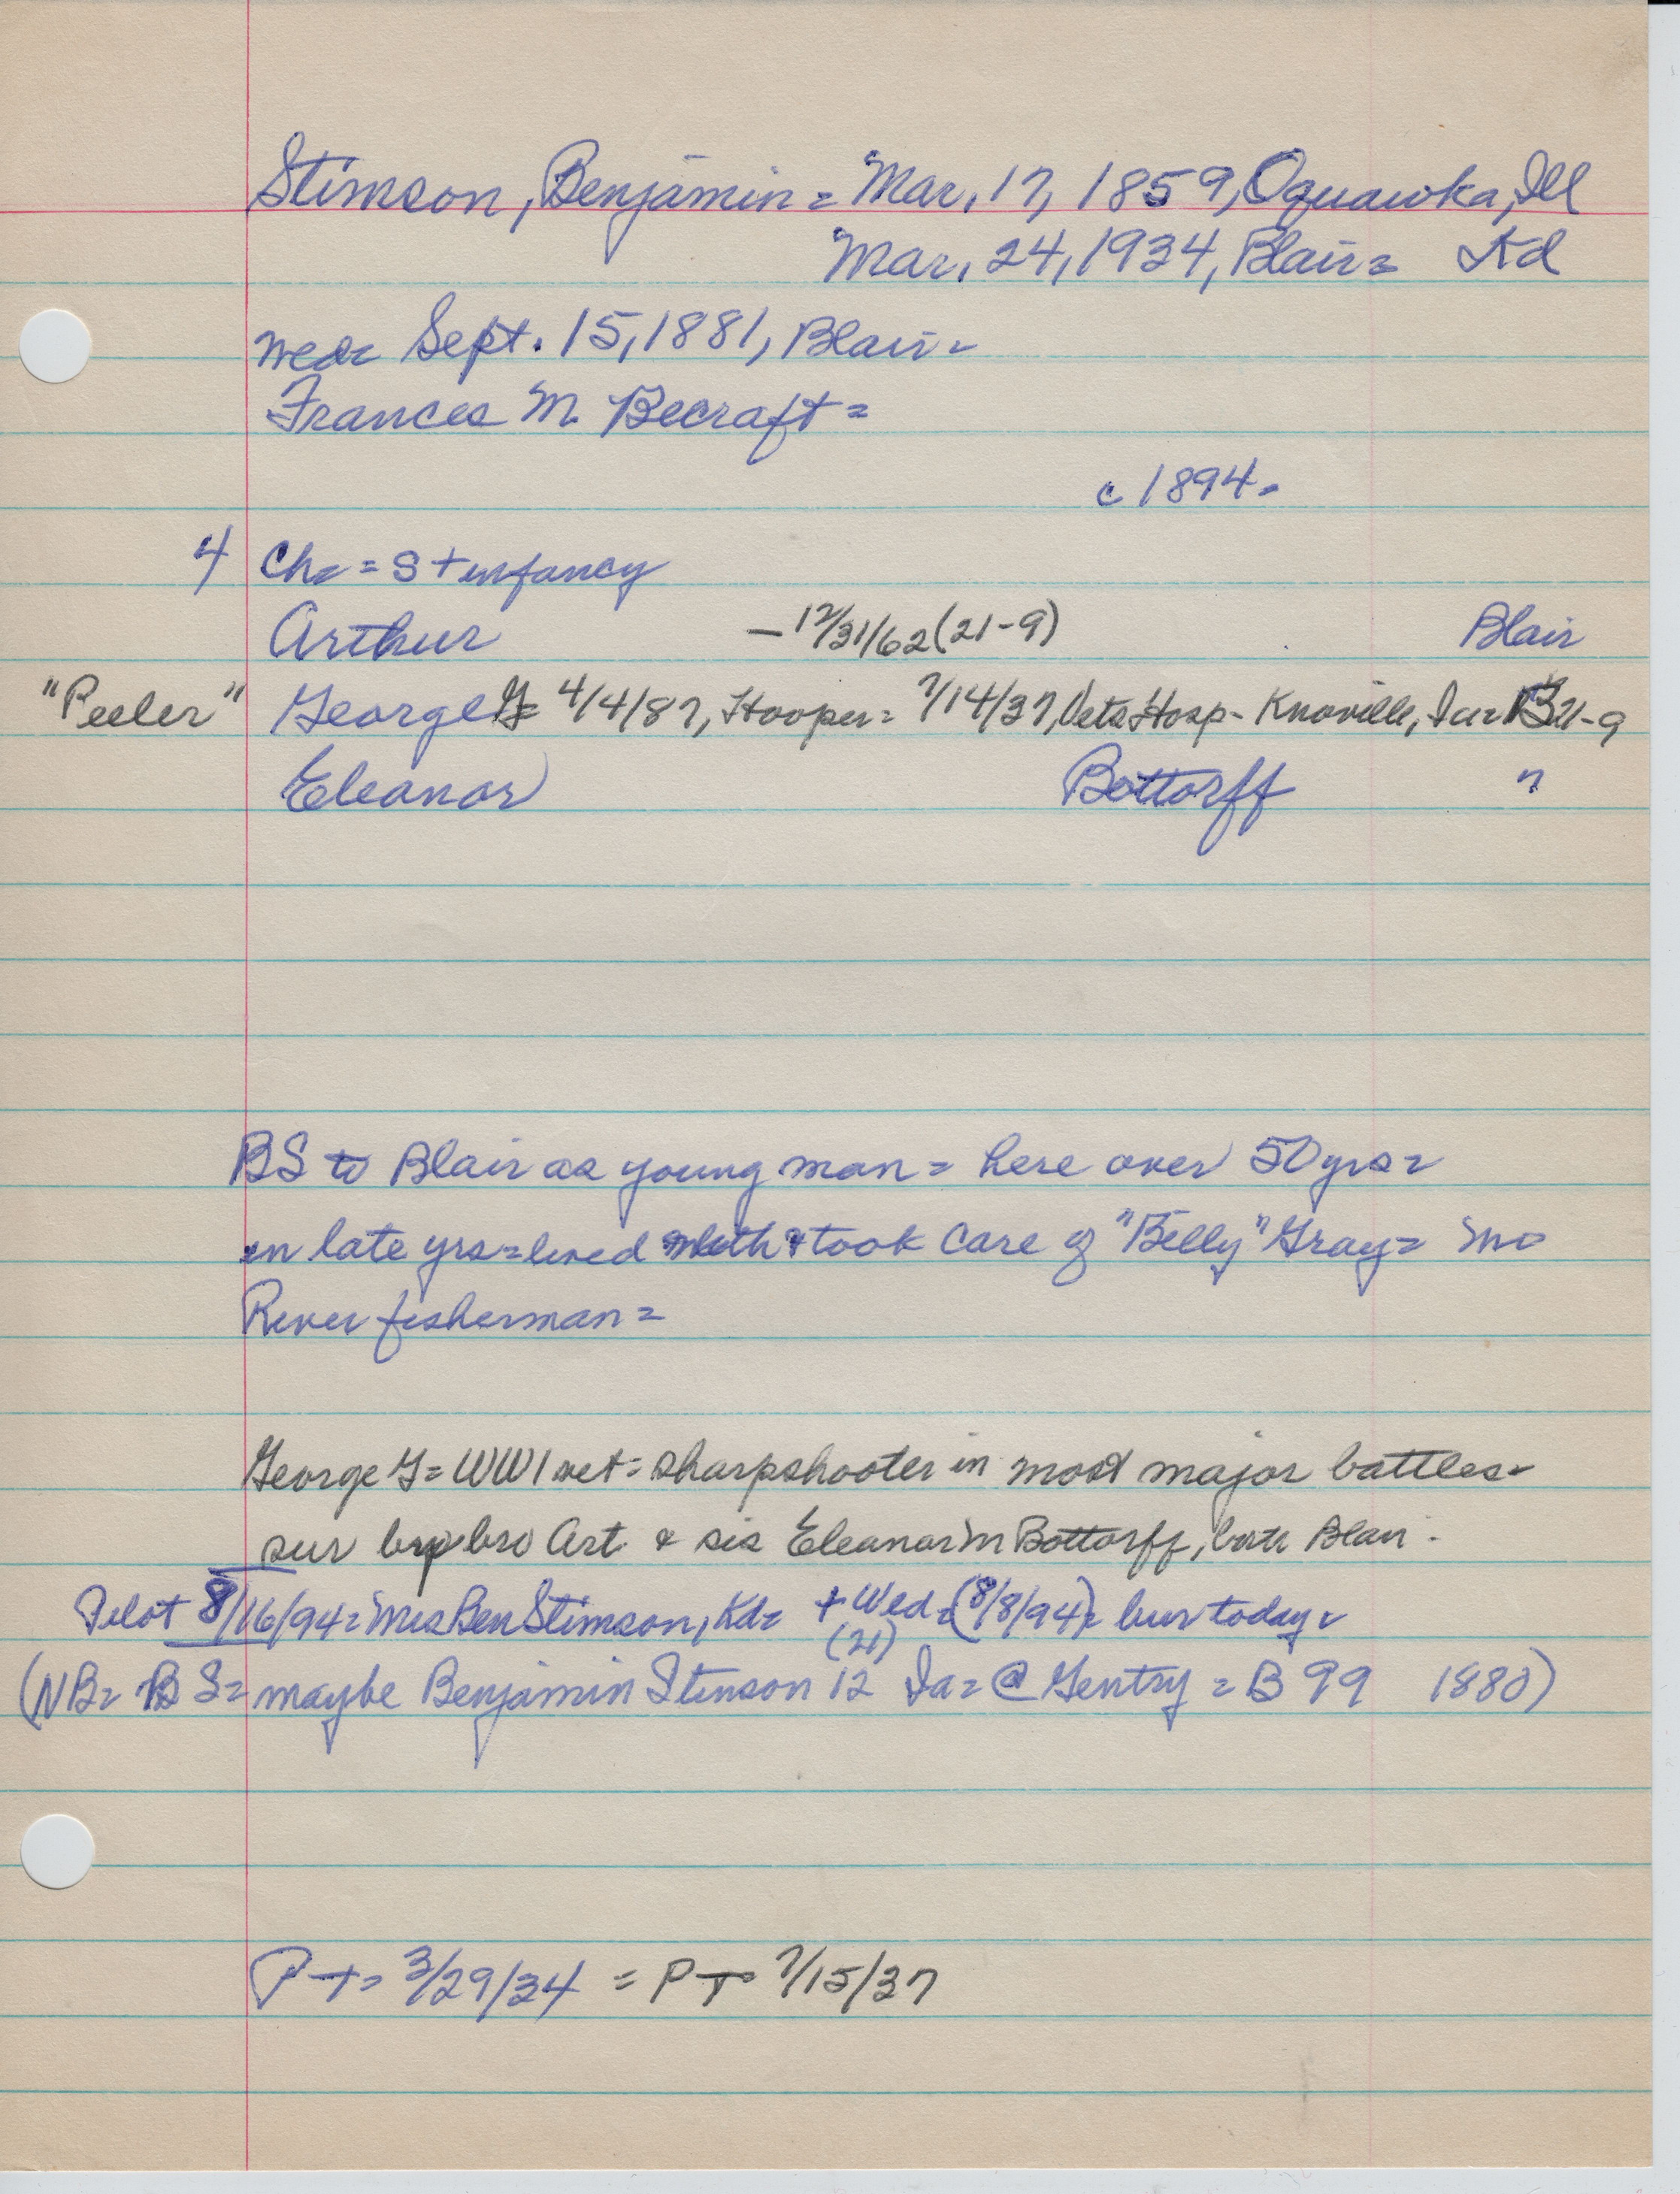 Stimson, Benjamin = Mar. 17, 1859, Oquawka, Ill
Mar. 24, 1934, Blair = Kd
wed = Sept. 15, 1881, Blair =
Frances M. Becraft =
c 1894 =
4 Ch = = S + infancy
Arthur – 12/31/62 (21-9) Blair
"Peeler" George G = 4/4/87, Hooper = 7/14/37, Vets Hosp - Knoxville, Ia = B 21-9
Eleanor Bottorff "
BS to Blair as young man = here over 50 yrs =
in late yrs = lived with & took care of "Billy" Gray = Mo
River fisherman =
George G = WW1 vet = sharpshooter in most major battles =
sur by bro Art & sis Eleanor M Bottorff, both Blair -
Pilot 8/16/94 = Mrs Ben Stimson, Kd = + Wed = (8/8/94) = bur today =
(21)
(NB = BS = maybe Benjamin Stinson 12 Ia = @ Gentry = B 99 1880)
PT = 3/29/34 = PT = 7/15/37